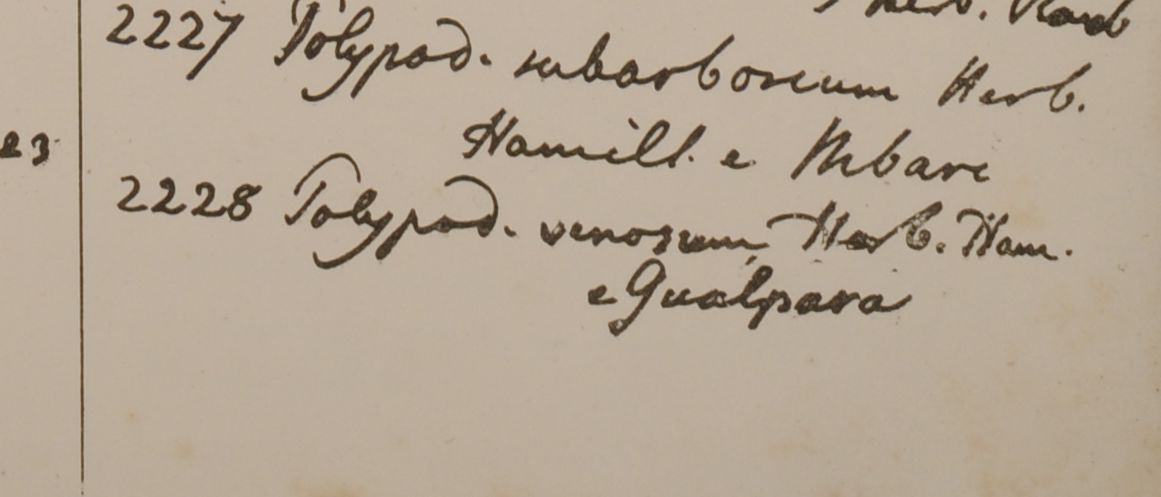 Herb. Roxb
2227 Polypod. subarboreum Herb.
23
Hamill. e
2228 Polypod. venosum Herb. Ham.
e Gualpara